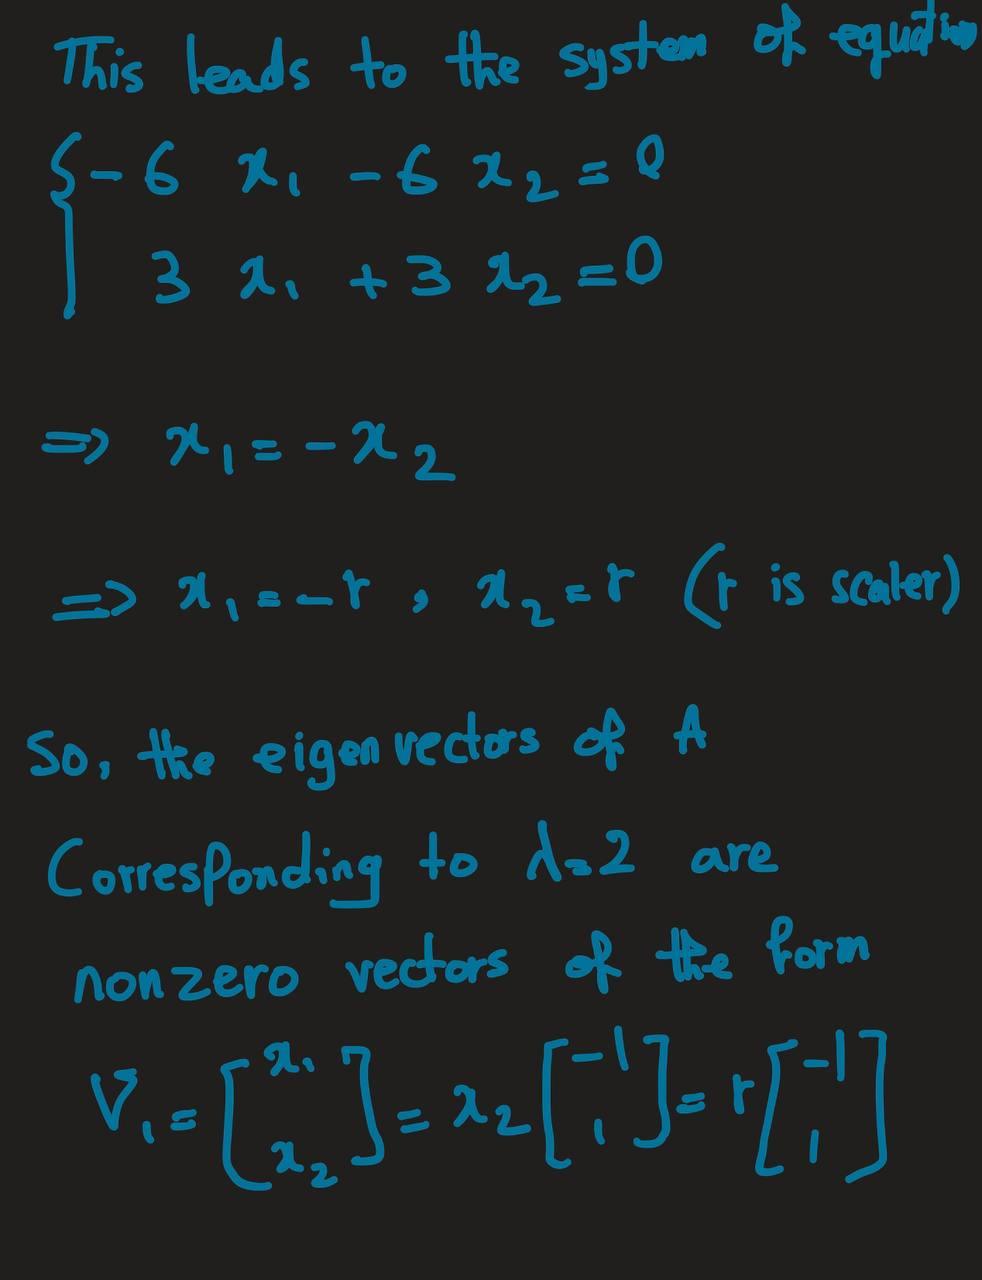 This leads to the system of equation
{ -6 x₁ - 6 x₂ = 0
3 x₁ + 3 x₂ = 0
⇒ x₁ = -x₂
⇒ x₁ = -r , x₂ = r (r is scaler)
So, the eigen vectors of A
Corresponding to λ=2 are
nonzero vectors of the form
V₁ = [x₁ x₂] = x₂ [-1 1] = r [-1 1]